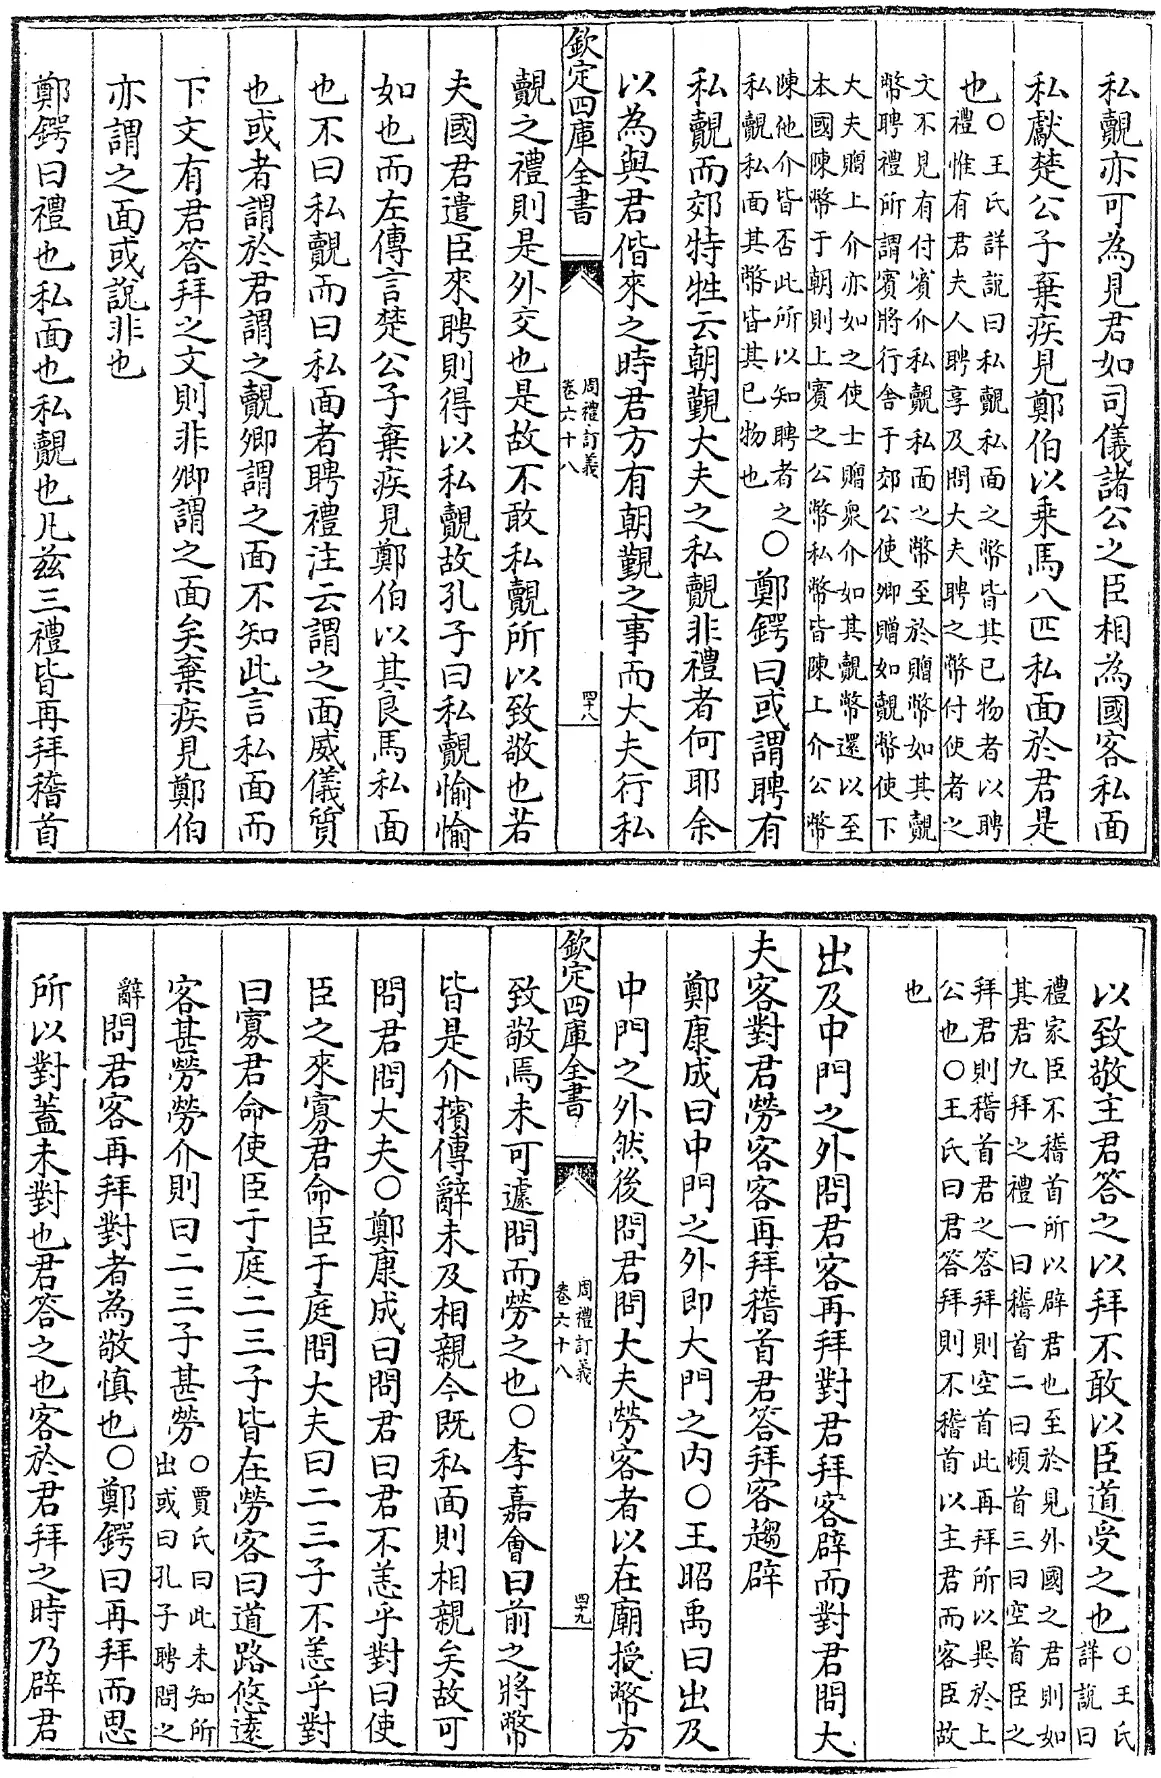 私覿亦可為見君如司儀諸公之臣相為國客私面
私獻楚公子棄疾見鄭伯以乘馬八匹私面於君是
也○王氏詳說曰私覿私面之幣皆其已物者以聘
禮惟有君夫人聘享及問大夫聘之幣付使者之
文不見有付賓介私覿私面之幣至於贈幣如其覿
幣聘禮所謂賓將行舍于郊公使卿贈如覿幣使下
大夫贈上介亦如之使士贈衆介如其覿幣還以至
本國陳幣于朝則上賓之公幣私幣皆陳上介公幣
陳他介皆否此所以知聘者之
私覿私面其幣皆其已物也○鄭鍔曰或謂聘有
私覿而郊特牲云朝覲大夫之私覿非禮者何耶余
以為與君偕來之時君方有朝覲之事而大夫行私
欽定四庫全書
周禮訂義
卷六十八
四十八
覿之禮則是外交也是故不敢私覿所以致敬也若
夫國君遣臣來聘則得以私覿故孔子曰私覿愉愉
如也而左傳言楚公子棄疾見鄭伯以其良馬私面
也不曰私覿而曰私面者聘禮注云謂之面威儀質
也或者謂於君謂之覿卿謂之面不知此言私面而
下文有君答拜之文則非卿謂之面矣棄疾見鄭伯
亦謂之面或說非也
鄭鍔曰禮也私面也私覿也凡茲三禮皆再拜稽首
以致敬主君答之以拜不敢以臣道受之也○王氏
詳說曰
禮家臣不稽首所以辟君也至於見外國之君則如
其君九拜之禮一曰稽首二曰頓首三曰空首臣之
拜君則稽首君之答拜則空首此再拜所以異於上
公也○王氏曰君答拜則不稽首以主君而客臣故
也
出及中門之外問君客再拜對君拜客辟而對君問大
夫客對君勞客客再拜稽首君答拜客趨辟
鄭康成曰中門之外即大門之內○王昭禹曰出及
中門之外然後問君問大夫勞客者以在廟授幣方
欽定四庫全書
周禮訂義
卷六十八
四十九
致敬焉未可遽問而勞之也○李嘉會曰前之將幣
皆是介擯傳辭未及相親今既私面則相親矣故可
問君問大夫○鄭康成曰問君曰君不恙乎對曰使
臣之來寡君命臣于庭問大夫曰二三子不恙乎對
曰寡君命使臣于庭二三子皆在勞客曰道路悠遠
客甚勞勞介則曰二三子甚勞○賈氏曰此未知所
出或曰孔子聘問之
辭問君客再拜對者為敬慎也○鄭鍔曰再拜而思
所以對蓋未對也君答之也客於君拜之時乃辟君